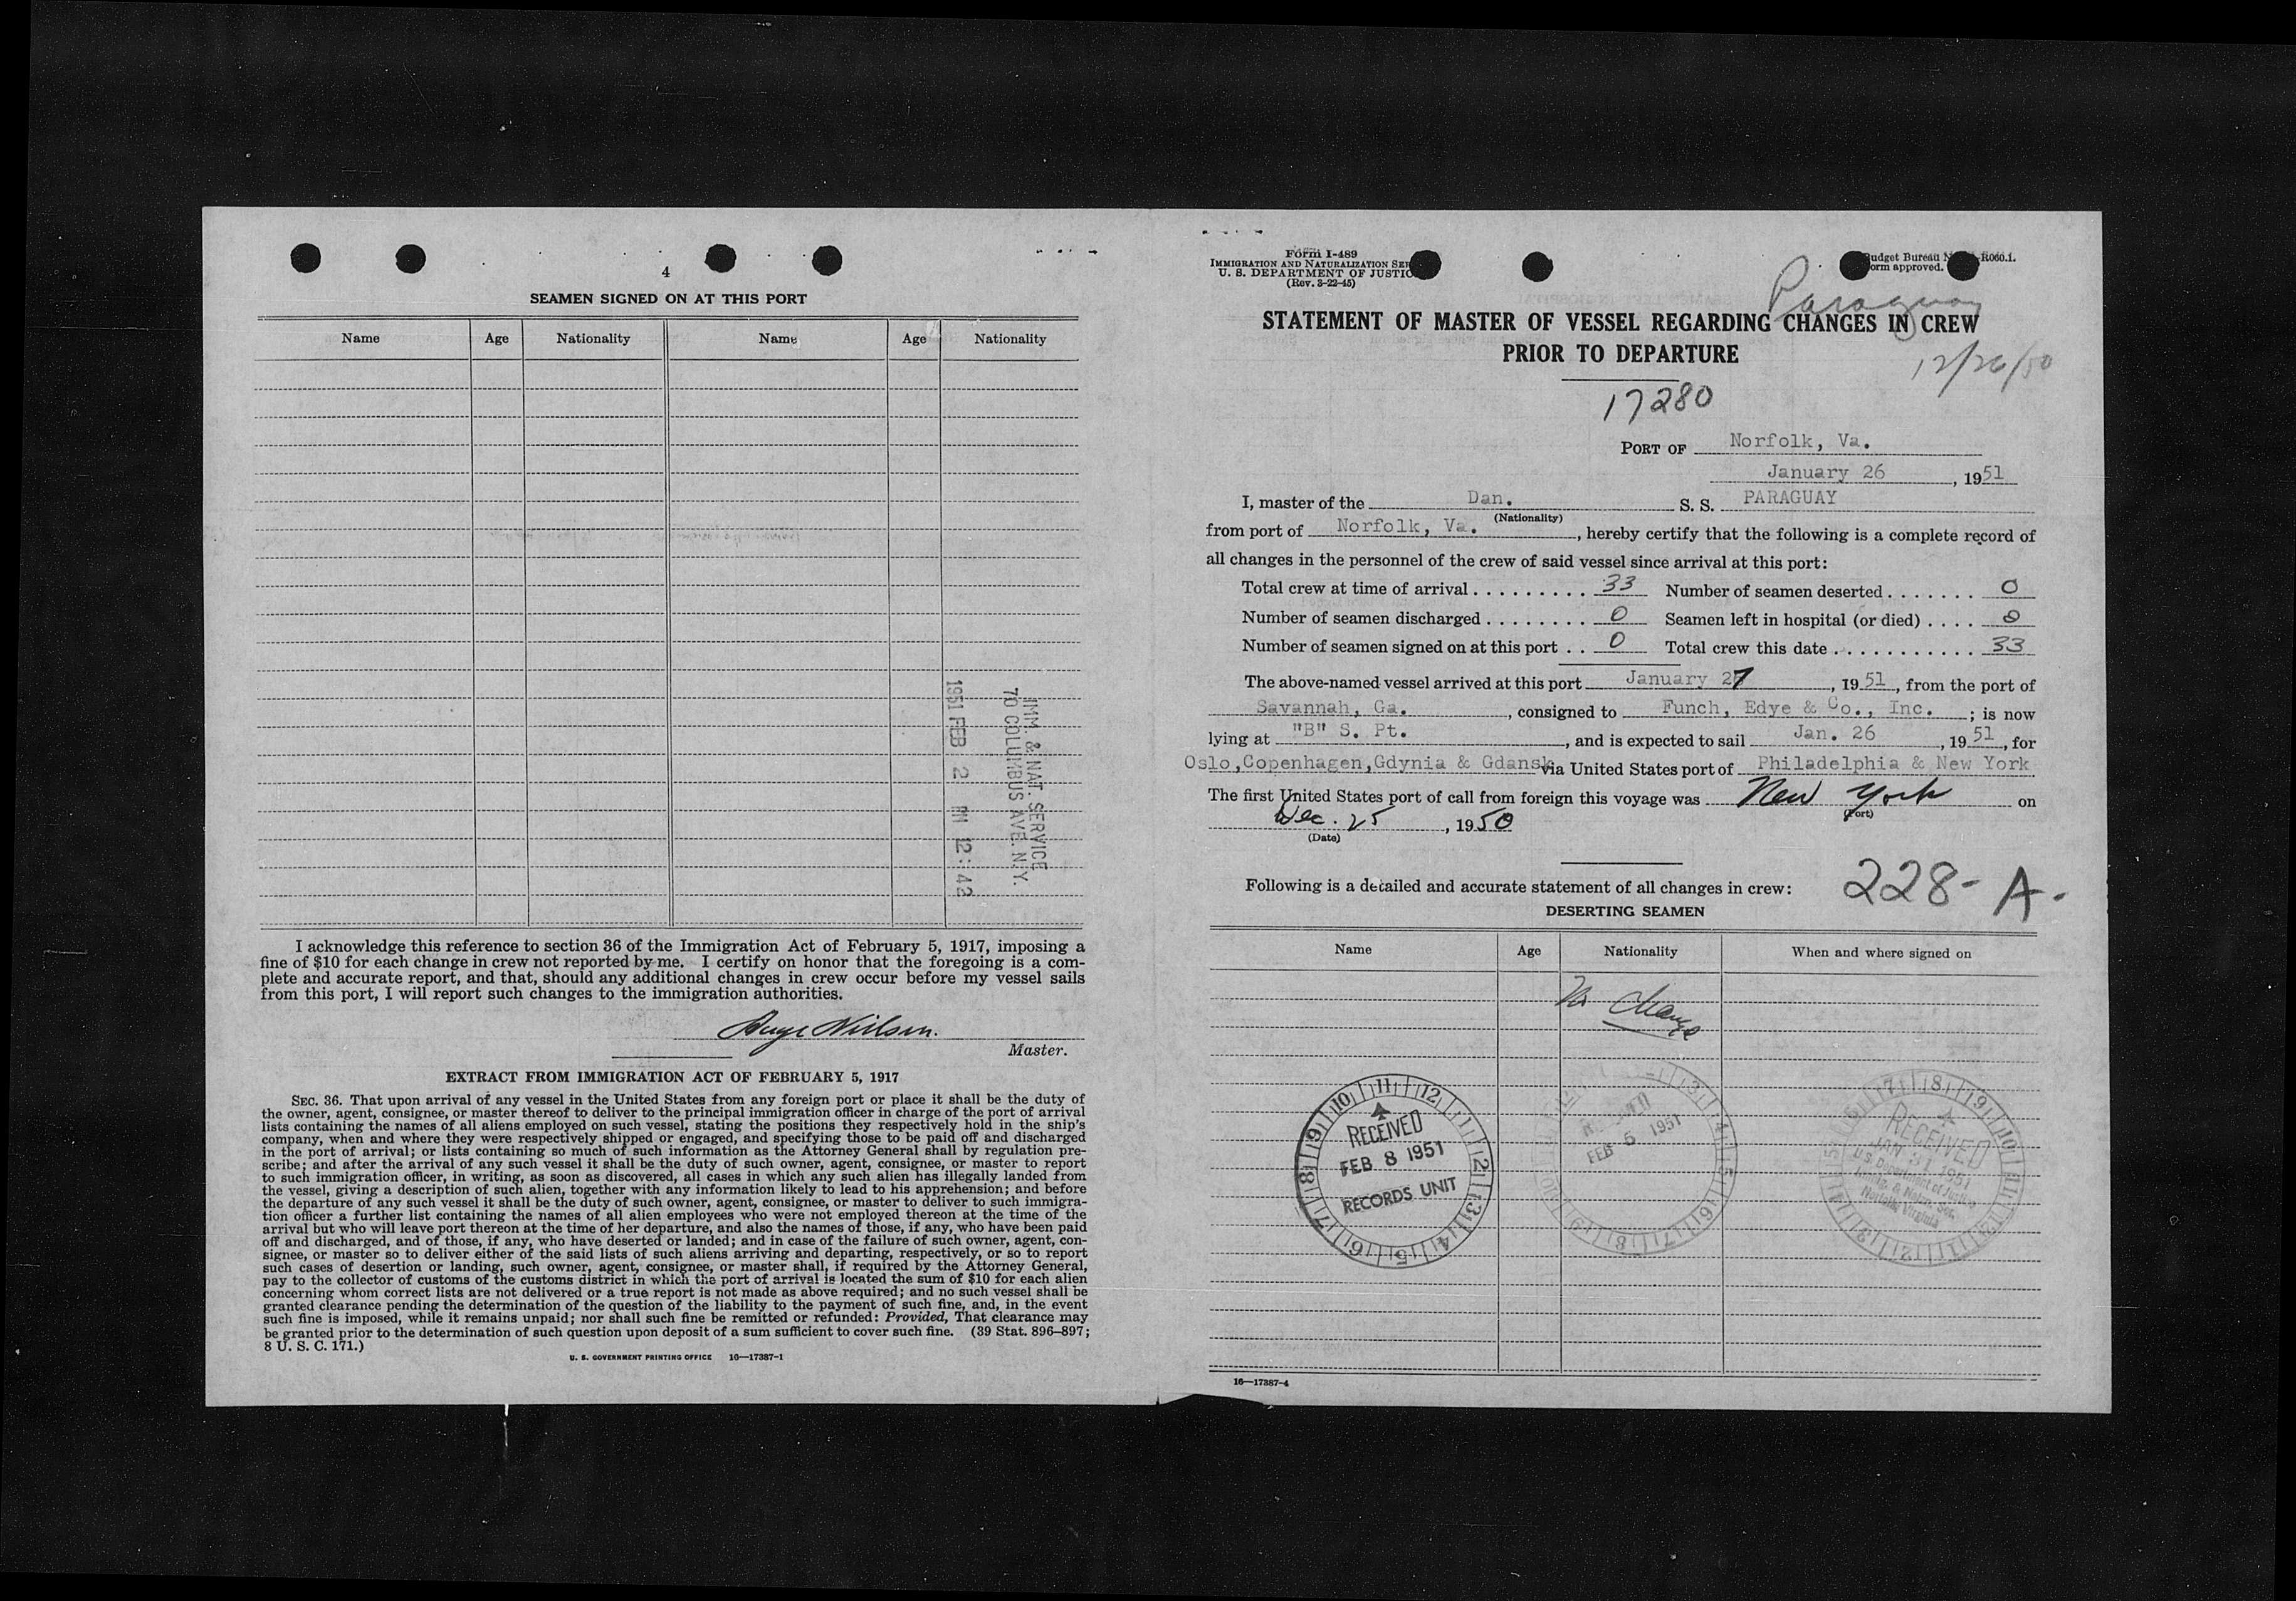 4
SEAMEN SIGNED ON AT THIS PORT
Name Age Nationality Name Age Nationality
IMM. & NAT. SERVICE
70 COLUMBUS AVE. N.Y.
1951 FEB 2 PM 12:42
I acknowledge this reference to section 36 of the Immigration Act of February 5, 1917, imposing a
fine of $10 for each change in crew not reported by me. I certify on honor that the foregoing is a com-
plete and accurate report, and that, should any additional changes in crew occur before my vessel sails
from this port, I will report such changes to the immigration authorities.
Nielsen.
Master.
EXTRACT FROM IMMIGRATION ACT OF FEBRUARY 5, 1917
SEC. 36. That upon arrival of any vessel in the United States from any foreign port or place it shall be the duty of
the owner, agent, consignee, or master thereof to deliver to the principal immigration officer in charge of the port of arrival
lists containing the names of all aliens employed on such vessel, stating the positions they respectively hold in the ship's
company, when and where they were respectively shipped or engaged, and specifying those to be paid off and discharged
in the port of arrival; or lists containing so much of such information as the Attorney General shall by regulation pre-
scribe; and after the arrival of any such vessel it shall be the duty of such owner, agent, consignee, or master to report
to such immigration officer, in writing, as soon as discovered, all cases in which any such alien has illegally landed from
the vessel, giving a description of such alien, together with any information likely to lead to his apprehension; and before
the departure of any such vessel it shall be the duty of such owner, agent, consignee, or master to deliver to such immigra-
tion officer a further list containing the names of all alien employees who were not employed thereon at the time of the
arrival but who will leave port thereon at the time of her departure, and also the names of those, if any, who have been paid
off and discharged, and of those, if any, who have deserted or landed; and in case of the failure of such owner, agent, con-
signee, or master so to deliver either of the said lists of such aliens arriving and departing, respectively, or so to report
such cases of desertion or landing, such owner, agent, consignee, or master shall, if required by the Attorney General,
pay to the collector of customs of the customs district in which the port of arrival is located the sum of $10 for each alien
concerning whom correct lists are not delivered or a true report is not made as above required; and no such vessel shall be
granted clearance pending the determination of the question of the liability to the payment of such fine, and, in the event
such fine is imposed, while it remains unpaid; nor shall such fine be remitted or refunded: Provided, That clearance may
be granted prior to the determination of such question upon deposit of a sum sufficient to cover such fine. (39 Stat. 896–897;
8 U. S. C. 171.)
U. S. GOVERNMENT PRINTING OFFICE 16—17387-1
Form I-489
IMMIGRATION AND NATURALIZATION SER
U. S. DEPARTMENT OF JUSTIC
(Rev. 3-22-45)
udget Bureau N -R060.1.
orm approved.
Paraguay
STATEMENT OF MASTER OF VESSEL REGARDING CHANGES IN CREW
PRIOR TO DEPARTURE
12/26/50
17280
PORT OF Norfolk, Va.
January 26, 1951
I, master of the Dan. S. S. PARAGUAY
(Nationality)
from port of Norfolk, Va., hereby certify that the following is a complete record of
all changes in the personnel of the crew of said vessel since arrival at this port:
Total crew at time of arrival ......... 33 Number of seamen deserted ....... 0
Number of seamen discharged ........ 0 Seamen left in hospital (or died) .... 0
Number of seamen signed on at this port .. 0 Total crew this date ........... 33
The above-named vessel arrived at this port January 27, 1951, from the port of
Savannah, Ga., consigned to Funch, Edye & Co., Inc.; is now
lying at "B" S. Pt., and is expected to sail Jan. 26, 1951, for
Oslo,Copenhagen,Gdynia & Gdansk via United States port of Philadelphia & New York
The first United States port of call from foreign this voyage was New York on
(Port)
Dec. 25, 1950
(Date)
Following is a detailed and accurate statement of all changes in crew:
228-A-
DESERTING SEAMEN
Name Age Nationality When and where signed on
No Change
RECEIVED
FEB 8 1951
RECORDS UNIT
RECEIVED
FEB 5 1951
RECEIVED
JAN 31 1951
U.S. Department of Justice
Immig. & Natzn Ser.
Norfolk, Virginia
16—17387-4